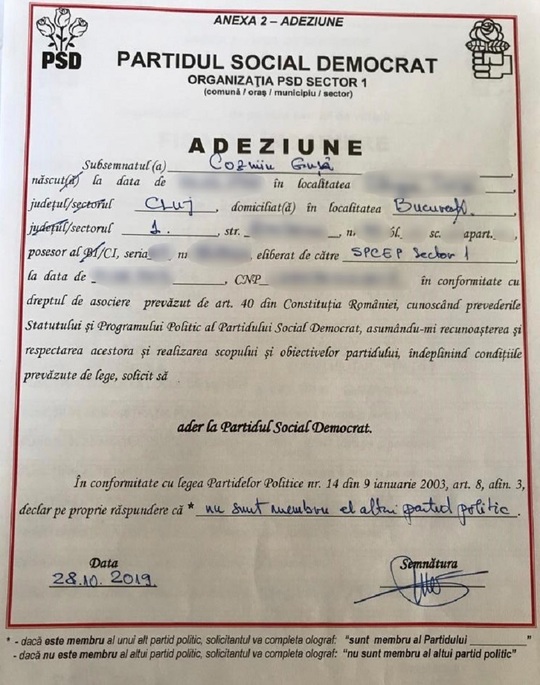 ANEXA 2 – ADEZIUNE
PSD
PARTIDUL SOCIAL DEMOCRAT
ORGANIZAŢIA PSD SECTOR 1
(comună / oraş / municipiu / sector)
ADEZIUNE
Subsemnatul(a) Cozmin Guşă
născut(ă) la data de în localitatea
judeţul/sectorul Cluj, domiciliat(ă) în localitatea Bucureşti
judeţul/sectorul 1., str. , nr. bl. sc. apart. ,
posesor al BI/CI, seria nr eliberat de către SPCEP Sector 1
la data de , CNP în conformitate cu
dreptul de asociere prevăzut de art. 40 din Constituţia României, cunoscând prevederile
Statutului şi Programului Politic al Partidului Social Democrat, asumându-mi recunoaşterea şi
respectarea acestora şi realizarea scopului şi obiectivelor partidului, îndeplinind condiţiile
prevăzute de lege, solicit să
ader la Partidul Social Democrat.
În conformitate cu legea Partidelor Politice nr. 14 din 9 ianuarie 2003, art. 8, alin. 3,
declar pe proprie răspundere că * nu sunt membru al altui partid politic.
Data Semnătura
28.10.2019
* - dacă este membru al unui alt partid politic, solicitantul va completa olograf: "sunt membru al Partidului ________"
- dacă nu este membru al altui partid politic, solicitantul va completa olograf: "nu sunt membru al altui partid politic"